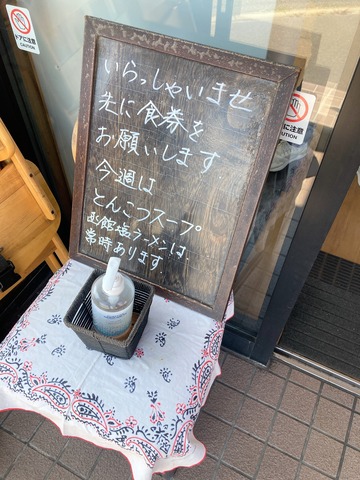 ドアに注意
CAUTION
いらっしゃいませ
先に食券を
お願いします
今週は
とんこつスープ
函館塩ラーメンは、
常時あります。
ドアに注意
CAUTION